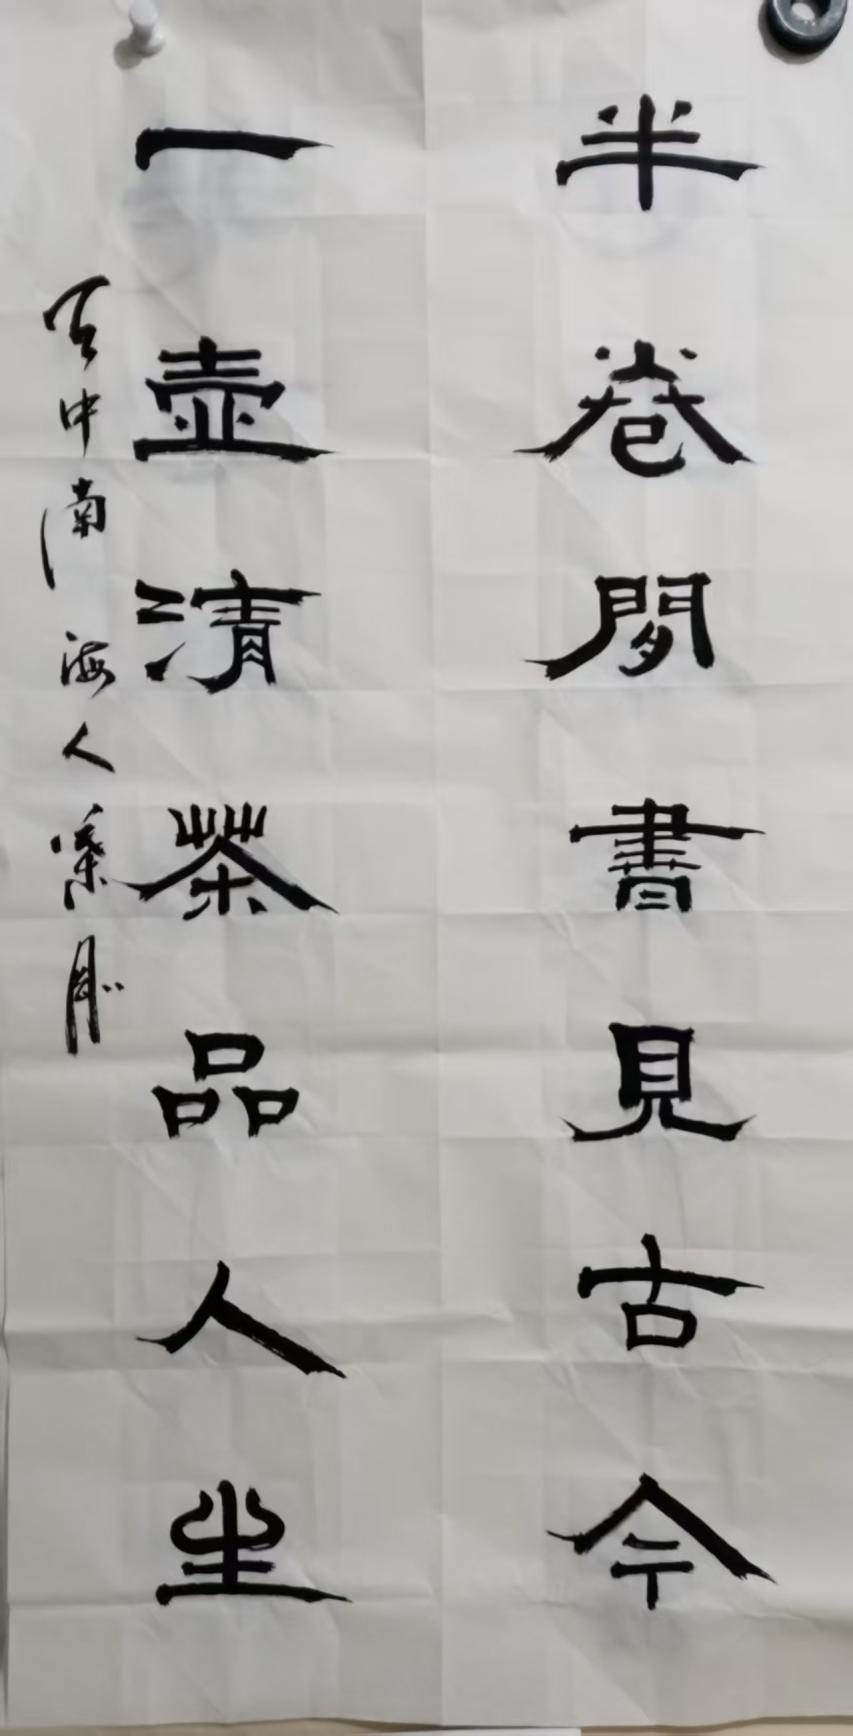 半卷閒書見古今
一壺清茶品人生
中南海人